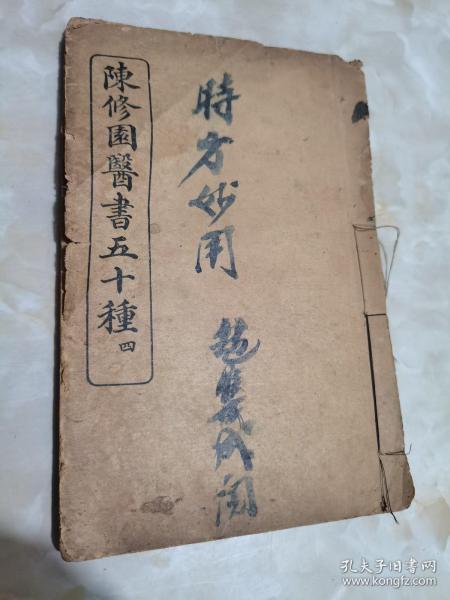 陳修園醫書五十種 四
時方妙用
集成閣
孔夫子旧书网
www.kongfz.com